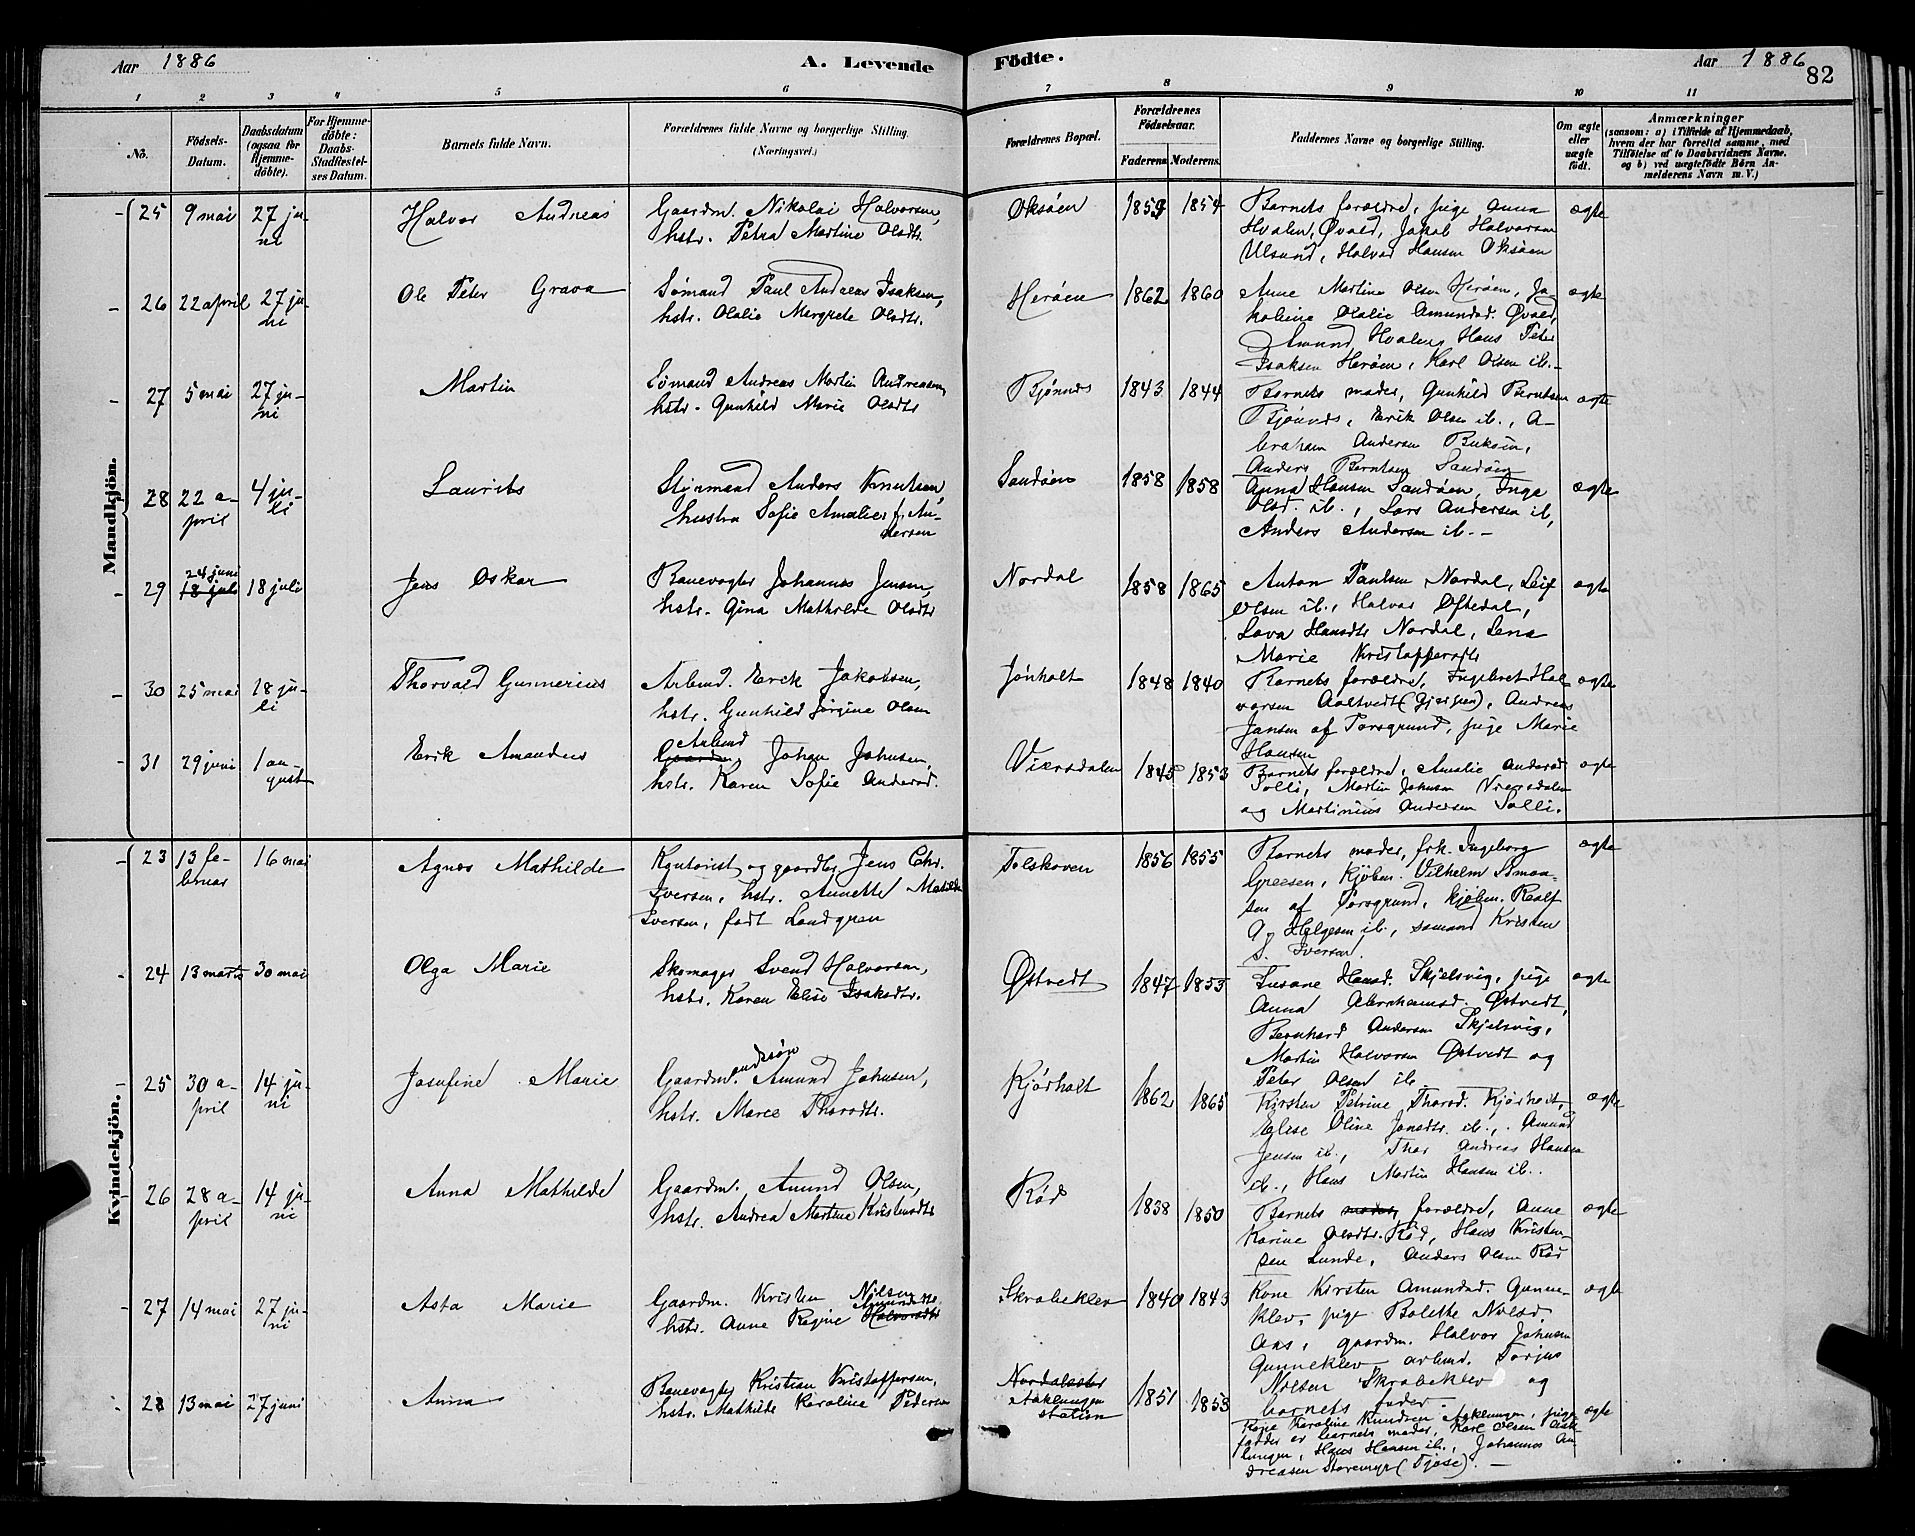 Aar 1886
A. Levende Födte.
Aar 1886
82
1 2 3 4 5 6 7 8 9 10 11
No.
Födsels-
Datum.
Daabsdatum
(ogsaa for
Hjemme-
döbte).
For Hjemme-
döbte:
Daabs-
Stadfæstel-
ses Datum.
Barnets fulde Navn.
Forældrenes fulde Navne og borgerlige Stilling.
(Næringsvei.)
Forældrenes Bopæl.
Forældrenes
Födselsaar.
Faderens.
Moderens.
Faddernes Navne og borgerlige Stilling.
Om ægte
eller
uægte
födt.
Anmærkninger
(saasom: a) i Tilfælde af Hjemmedaab,
hvem der har forrettet samme, med
Tilföielse af to Daabsvidners Navne,
og b) ved uægtefödte Börn An-
melderens Navn m. V.)
Mandkjön.
25 9 mai 27 ju-
ni
Halvor Andreas
Gaardm. Nikolai Halvorsen,
hstr. Petra Martine Olsdtr.
Oksøen
1854 1854
Barnets forældre, pige Anna
Hvalen, Øvald, Jakob Halvorsen
Ulsund, Halvor Hansen Oksøen
ægte
26 22 april 27 ju-
ni
Ole Peter Grava
Sømand Paul Andreas Isaksen,
hstr. Olalie Margrete Olsdtr.
Herøen
1862 1860
Anne Martine Olsen Herøen, Ja-
kobine Olalie Amundsd. Øvald,
Amund Hvalen, Hans Peter
Isaksen Herøen, Karl Olsen ib.-
ægte
27 5 mai 27 ju-
ni
Martin
Sømand Andreas Martin Andreasen,
hstr. Gunhild Marie Olsdtr
Bjønnes
1843 1844
Barnets moder, Gunhild Berntsen
Bjønnes, Erik Olsen ib., A-
braham Andersen
Anders Berntsen Sandøen
ægte
28 22 a-
pril
4 ju-
li
Laurits
Styrmand Anders Knutsen,
hustru Sofie Amalie f. An-
dersen
Sandøen
1858 1858
Anna Hansen Sandøen, Inge
Olsd. ib., Lars Andersen ib,
Anders Andersen ib.-
ægte
29 24 juni
18 juli
18 juli
Jens Oskar
Banevogter Johannes Jensen,
hstr. Gina Mathilde Olsdtr
Nordal
1858 1865
Anton Paulsen Nordal, Leif
Olsen ib., Halvor Øftedal,
Lava Hansdtr Nordal, Lena
Marie Kristoffersdtr
ægte
30 25 mai 18 ju-
li
Thorvald Gunnerius
Arbmd. Erik Jakobsen,
hstr. Gunhild Jørgine Olsen
Jønholt
1848 1840
Barnets forældre, Ingebret Hal-
vorsen Aaltvedt (Gjerpen), Andreas
Jansen af Porsgrund, pige Marie
Hansen
ægte
31 29 juni 1 au-
gust
Erik Amandus
Arbmd
Gaardm. Johan Johnsen,
hstr. Karen Sofie Andersd.
Viersdalen
1845 1853
Barnets forældre, Amalie Andersd
Solli, Martin Johnsen Viersdalen
og Martinius Andersen Solli.
ægte
Kvindekjön.
23 13 fe-
bruar
16 mai
Agnes Mathilde
Kontorist og gaardbr Jens Chr.
Iversen, hstr. Annette Matilde
Iversen, født Landgren
Tolskoven
1856 1855
Barnets moder, frk. Ingeborg
Kjøbm. Vilhelm Simon-
sen af Porsgrund, kjøbm. Realf
Helgesen ib., sømand Kristen
S. Iversen.
ægte
24 13 marts 30 mai
Olga Marie
Skomager Svend Halvorsen,
hstr. Karen Elise Isaksdtr.
Østvedt
1847 1853
Susane Hansd. Skjelsvig, pige
Anna Abrahamsd. Østvedt,
Bernhard Andersen Skjelsvig,
Martin Halvorsen Østvedt og
Peter Olsen ib
ægte
25 30 a-
pril
14 ju-
ni
Josefine Marie
Gaardm.andssøn Amund Johnsen,
hstr. Maren Thorsdtr.
Kjørholt
1862 1865
Kirsten Petrine Thorsd. Kjørholt,
Elise Oline Jonsdtr. ib., Amund
Jensen ib., Thor Andreas Hansen
ib., Hans Martin Hansen ib..
ægte
26 28 a-
pril
14 ju-
ni
Anna Mathilde
Gaardm. Amund Olsen,
hstr. Andrea Martine Kristensdtr
Rød
1838 1850
Barnets moder, forældre, Anne
Karine Olsdtr. Rød, Hans Kristen-
sen Lunde, Anders Olsen Rød
ægte
27 14 mai 27 ju-
ni
Asta Marie
Gaardm. Kristen Nilsen
hstr. Anne Regine Amundsdtr. Halvorsdtr
Skrabeklev
1840 1843
Kone Kirsten Amundsd. Gunne-
klev, pige Bolette Nilsd.
Aas, gaardm. Halvor Johnsen
Gunneklev arbmd. Torjus
Nilsen Skrabeklev og
barnets fader.
ægte
28 13 mai 27 juni
Anna
Banevogter Kristian Kristoffersen,
hstr. Mathilde Karoline Pedersen
Aaklungen
station
1851 1853
Kone Karoline Knudsen Aaklungen, pige
fadder er barnets moder, Karl Olsen Aak-
lungen, Hans Hansen ib., Johannes An-
dreasen Storemyr (Tjøse). -
ægte